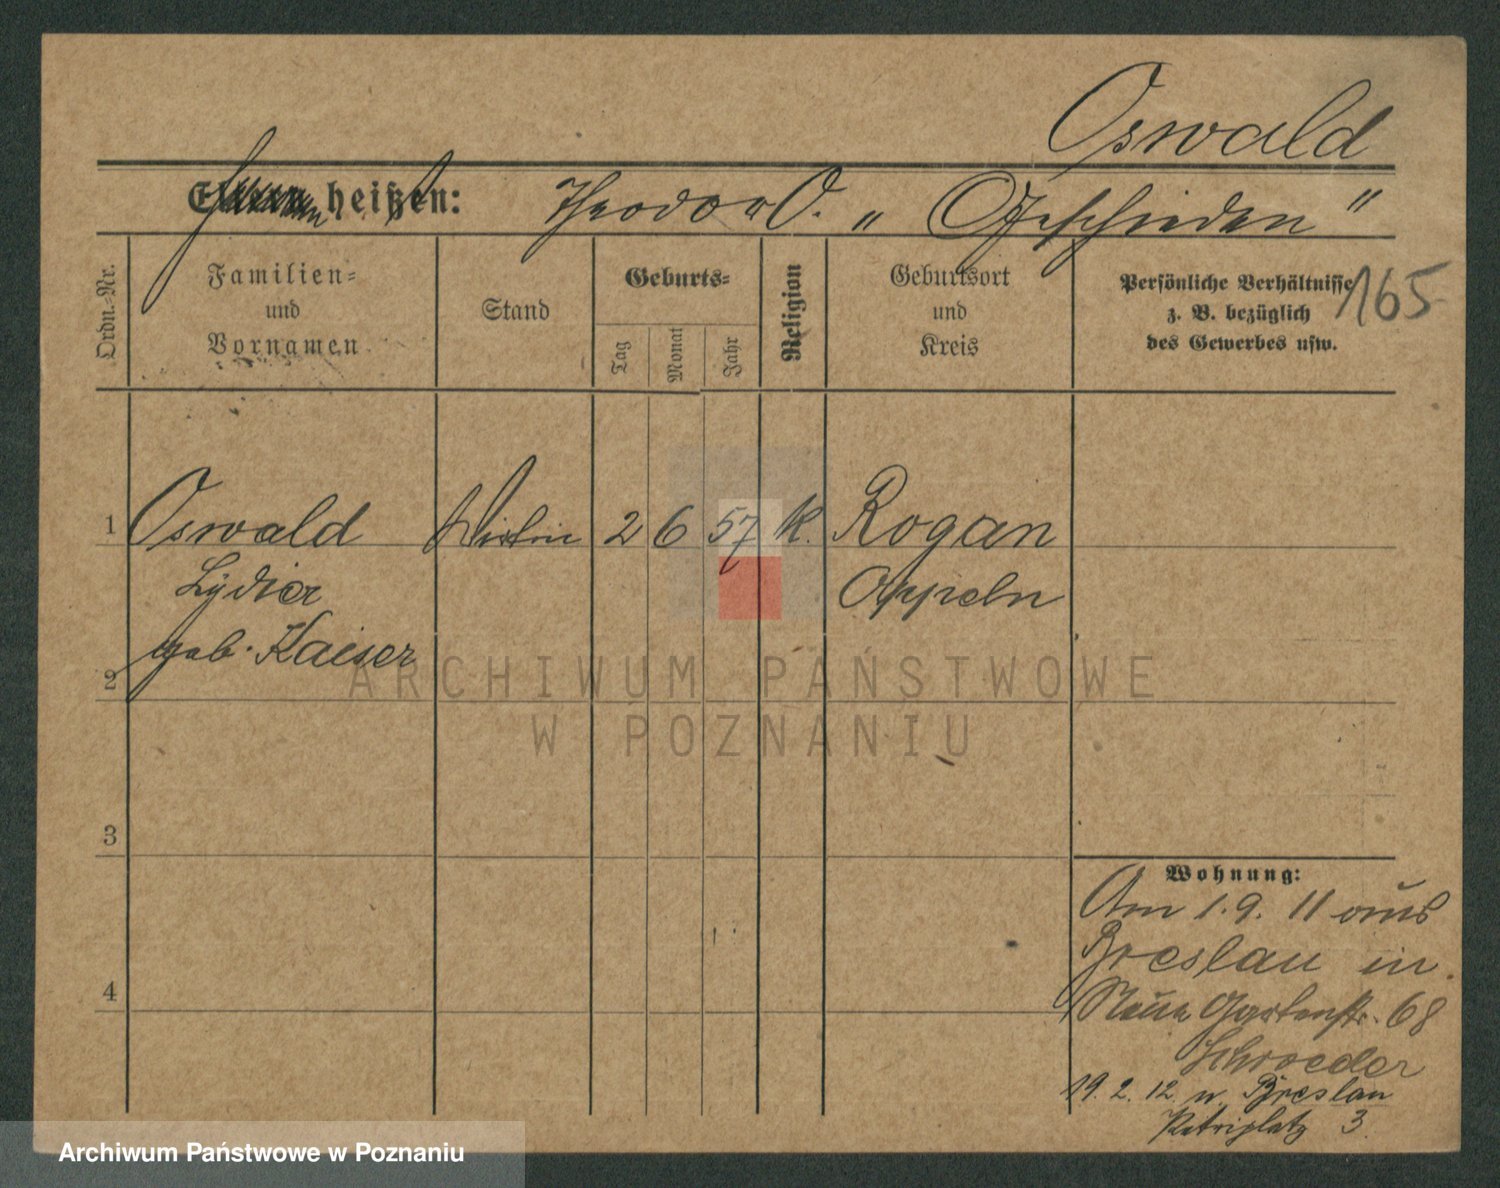 Oswald
Eltern heißen: Theodor O. „ Geschieden "
Ordn.-Nr.
Familien-
und
Vornamen
Stand
Geburts-
Tag
Monat
Jahr
Religion
Geburtsort
und
Kreis
Persönliche Verhältnisse
z. B. bezüglich
des Gewerbes usw.
165
1 Oswald Wirtin 2 6 57 K. Rogau
Lydia Oppeln
geb. Kaiser
2
ARCHIWUM PAŃSTWOWE
W POZNANIU
3
Wohnung:
Am 1. 9. 11 aus
Breslau in
4
Neue Gartenstr. 68
Schroeder
19. 2. 12. n. Breslau
3
Archiwum Państwowe w Poznaniu